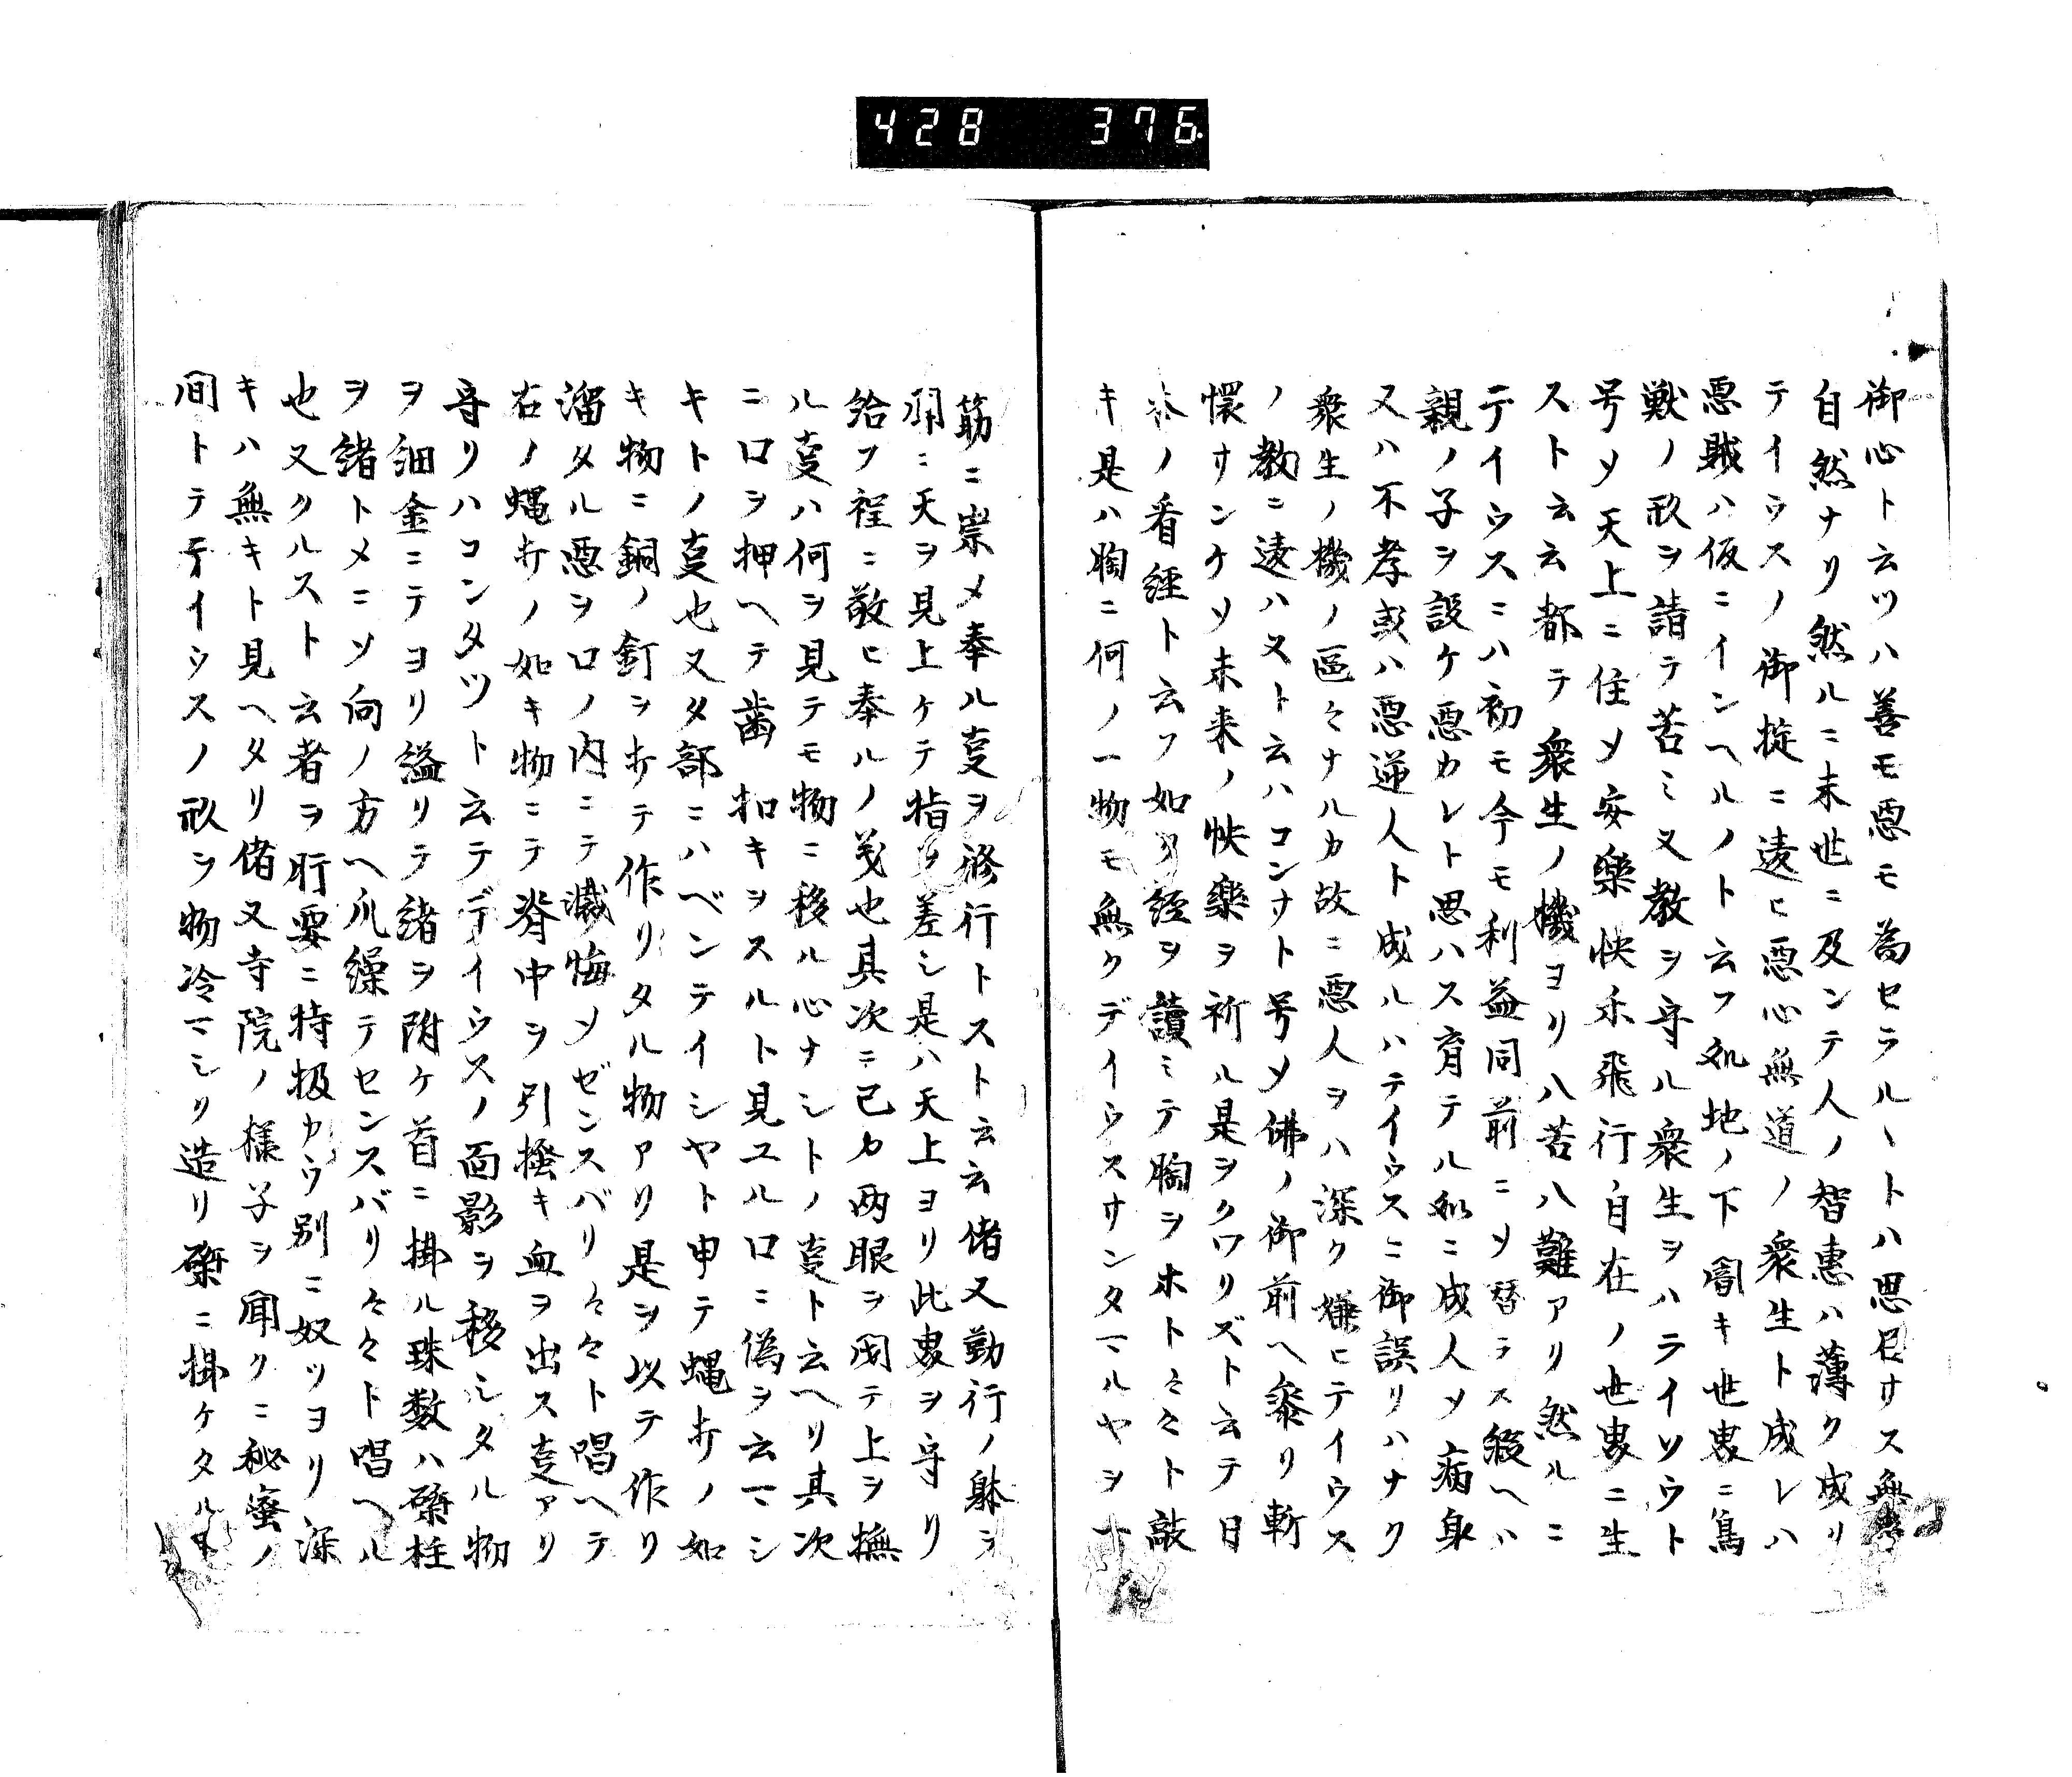 428 376
御心ト云ツハ善モ悪モ為セラルヽトハ思召サス無
自然ナリ然ルニ末世ニ及ンテ人ノ智惠ハ薄ク成リ
テイウスノ御掟ニ遠ヒ悪心無道ノ衆生ト成レハ
悪賊ハ仮ニインヘルノト云フ処地ノ下闇キ世界ニ鳥
獣ノ形ヲ請テ苦ミ又教ヲ守ル衆生ヲハライソウト
号ソ天上ニ住ソ安樂快禾飛行自在ノ世界ニ生
スト云云都テ衆生ノ機ヨリ八苦八難アリ然ルニ
テイウスニハ初モ今モ利益同前ニソ替ラス縦ヘハ
親ノ子ヲ設ケ悪カレト思ハス育テル如ニ成人ソ病身
又ハ不孝或ハ悪逆人ト成ルハテイウスニ御誤リハナク
衆生ノ機ノ區々ナルカ故ニ悪人ヲハ深ク嫌ヒテイウス
ノ教ニ遠ハヌト云ハコンナト号ソ佛ノ御前ヘ參リ斬
懷サンケソ未来ノ快樂ヲ祈ル是ヲクワリズト云テ日
本ノ看經ト云フ如ク經ヲ讀ミテ胸ヲホト々々ト敲
キ是ハ胸ニ何ノ一物モ無クデイウスサンタマルヤヲ一
筋ニ崇メ奉ル叓ヲ修行トスト云云偖又勤行ノ躰ヲ
聞ニ天ヲ見上ケテ指ヲ差シ是ハ天上ヨリ此界ヲ守リ
給フ程ニ敬ヒ奉ルノ義也其次ニ己カ两眼ヲ閉テ上ヲ撫
ル叓ハ何ヲ見テモ物ニ移ル心ナシトノ叓ト云ヘリ其次
ニ口ヲ押ヘテ歯扣キヲスルト見ユル口ニ偽ヲ云マシ
キトノ叓也又タ部ニハベンテイシヤト申テ蝿打ノ如
キ物ニ銅ノ釘ヲ打テ作リタル物アリ是ヲ以テ作リ
溜タル悪ヲ口ノ内ニテ懺悔ソゼンスバリ々々ト唱ヘテ
右ノ蝿打ノ如キ物ニテ脊中ヲ引掻キ血ヲ出ス叓アリ
守リハコンタツト云テデイウスノ面影ヲ移シタル物
ヲ細金ニテヨリ縊リテ緒ヲ附ケ首ニ掛ル珠数ハ磔柱
ヲ緒トメニソ向ノ方ヘ爪繰テセンスバリ々々ト唱ヘル
也又クルスト云者ヲ肝要ニ持扱カウ別ニ奴ツヨリ深
キハ無キト見ヘタリ偖又寺院ノ様子ヲ聞クニ秘蜜ノ
間トテテイウスノ形ヲ物冷マシリ造リ磔ニ掛ケタル